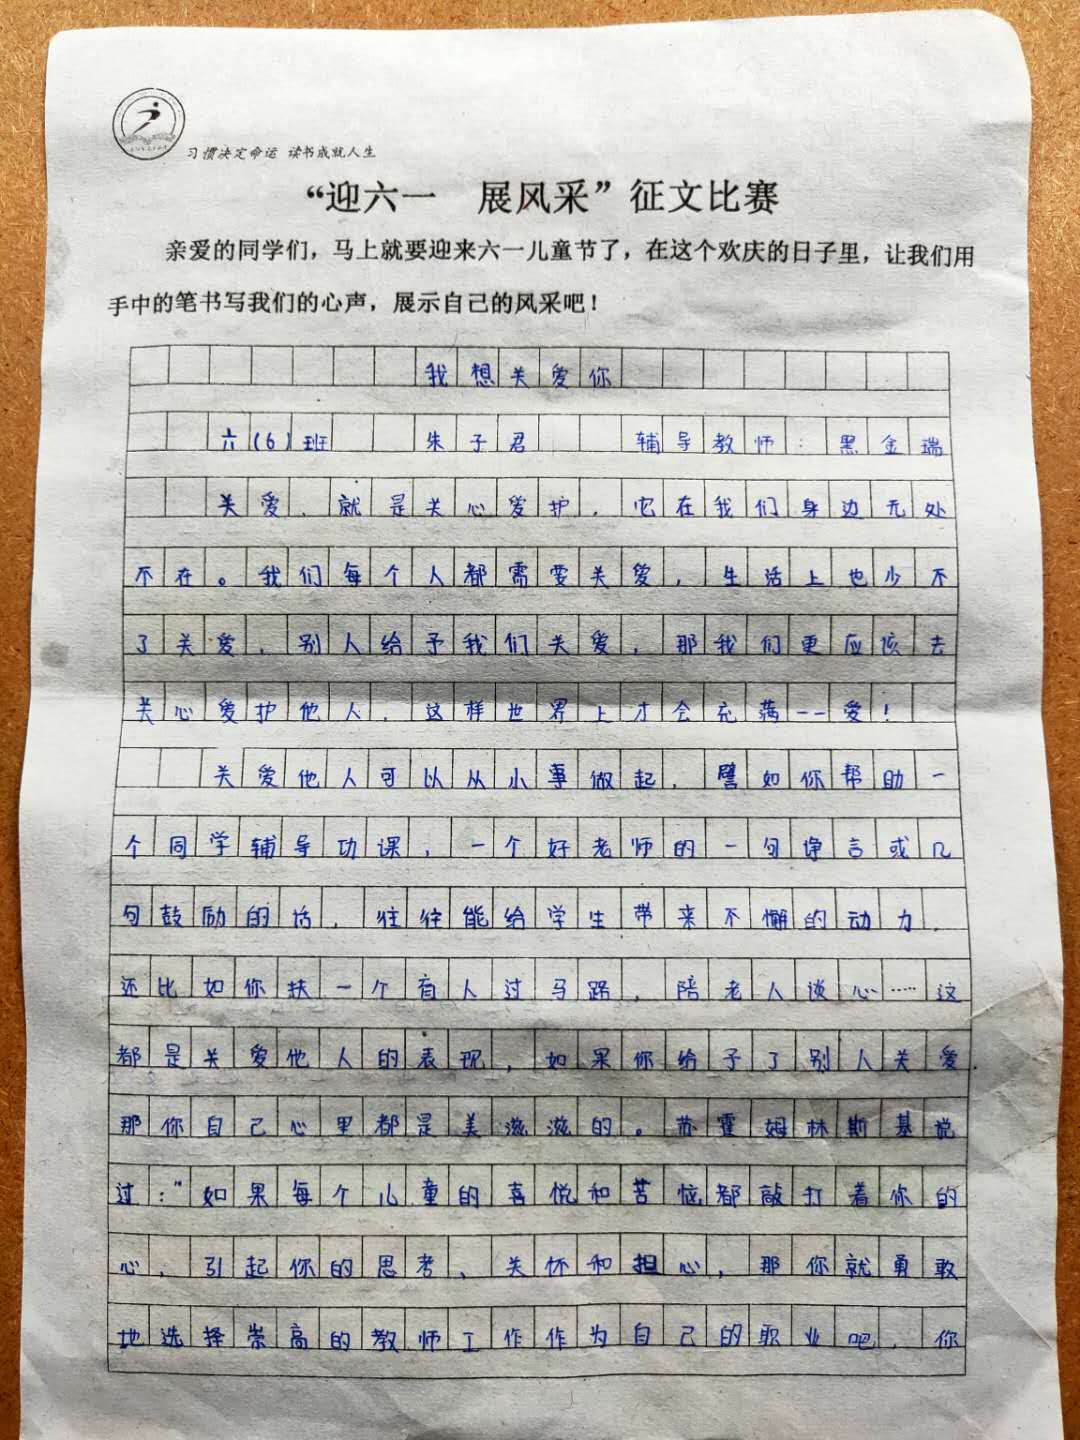 习惯决定命运 读书成就人生
“迎六一 展风采”征文比赛
亲爱的同学们，马上就要迎来六一儿童节了，在这个欢庆的日子里，让我们用
手中的笔书写我们的心声，展示自己的风采吧！
我想关爱你
六(6)班 朱子君 辅导教师：黑金瑞
关爱，就是关心爱护，它在我们身边无处
不在。我们每个人都需要关爱，生活上也少不
了关爱，别人给予我们关爱，那我们更应该去
关心爱护他人，这样世界上才会充满--爱！
关爱他人可以从小事做起，譬如你帮助一
个同学辅导功课，一个好老师的一句诤言或几
句鼓励的话，往往能给学生带来不懈的动力，
还比如你扶一个盲人过马路，陪老人谈心……这
都是关爱他人的表现，如果你给予了别人关爱，
那你自己心里都是美滋滋的。苏霍姆林斯基说
过：“如果每个儿童的喜悦和苦恼都敲打着你的
心，引起你的思考、关怀和担心，那你就勇敢
地选择崇高的教师工作作为自己的职业吧，你